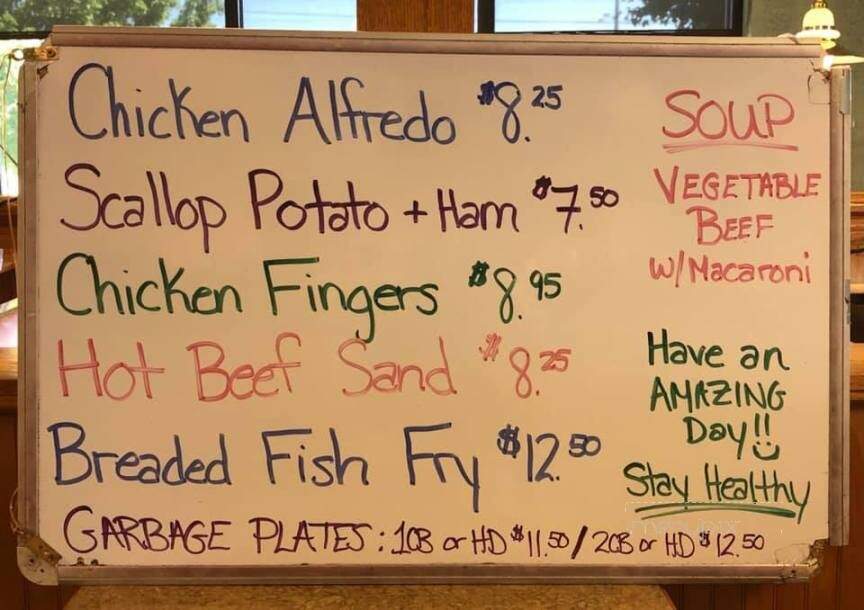 Chicken Alfredo $8.25
Scallop Potato + Ham $7.50
Chicken Fingers $8.95
Hot Beef Sand $8.25
Breaded Fish Fry $12.50
GARBAGE PLATES: 1CB or HD $11.50 / 2CB or HD $12.50
SOUP
VEGETABLE
BEEF
W/Macaroni
Have an
AMAZING
Day!!
Stay Healthy